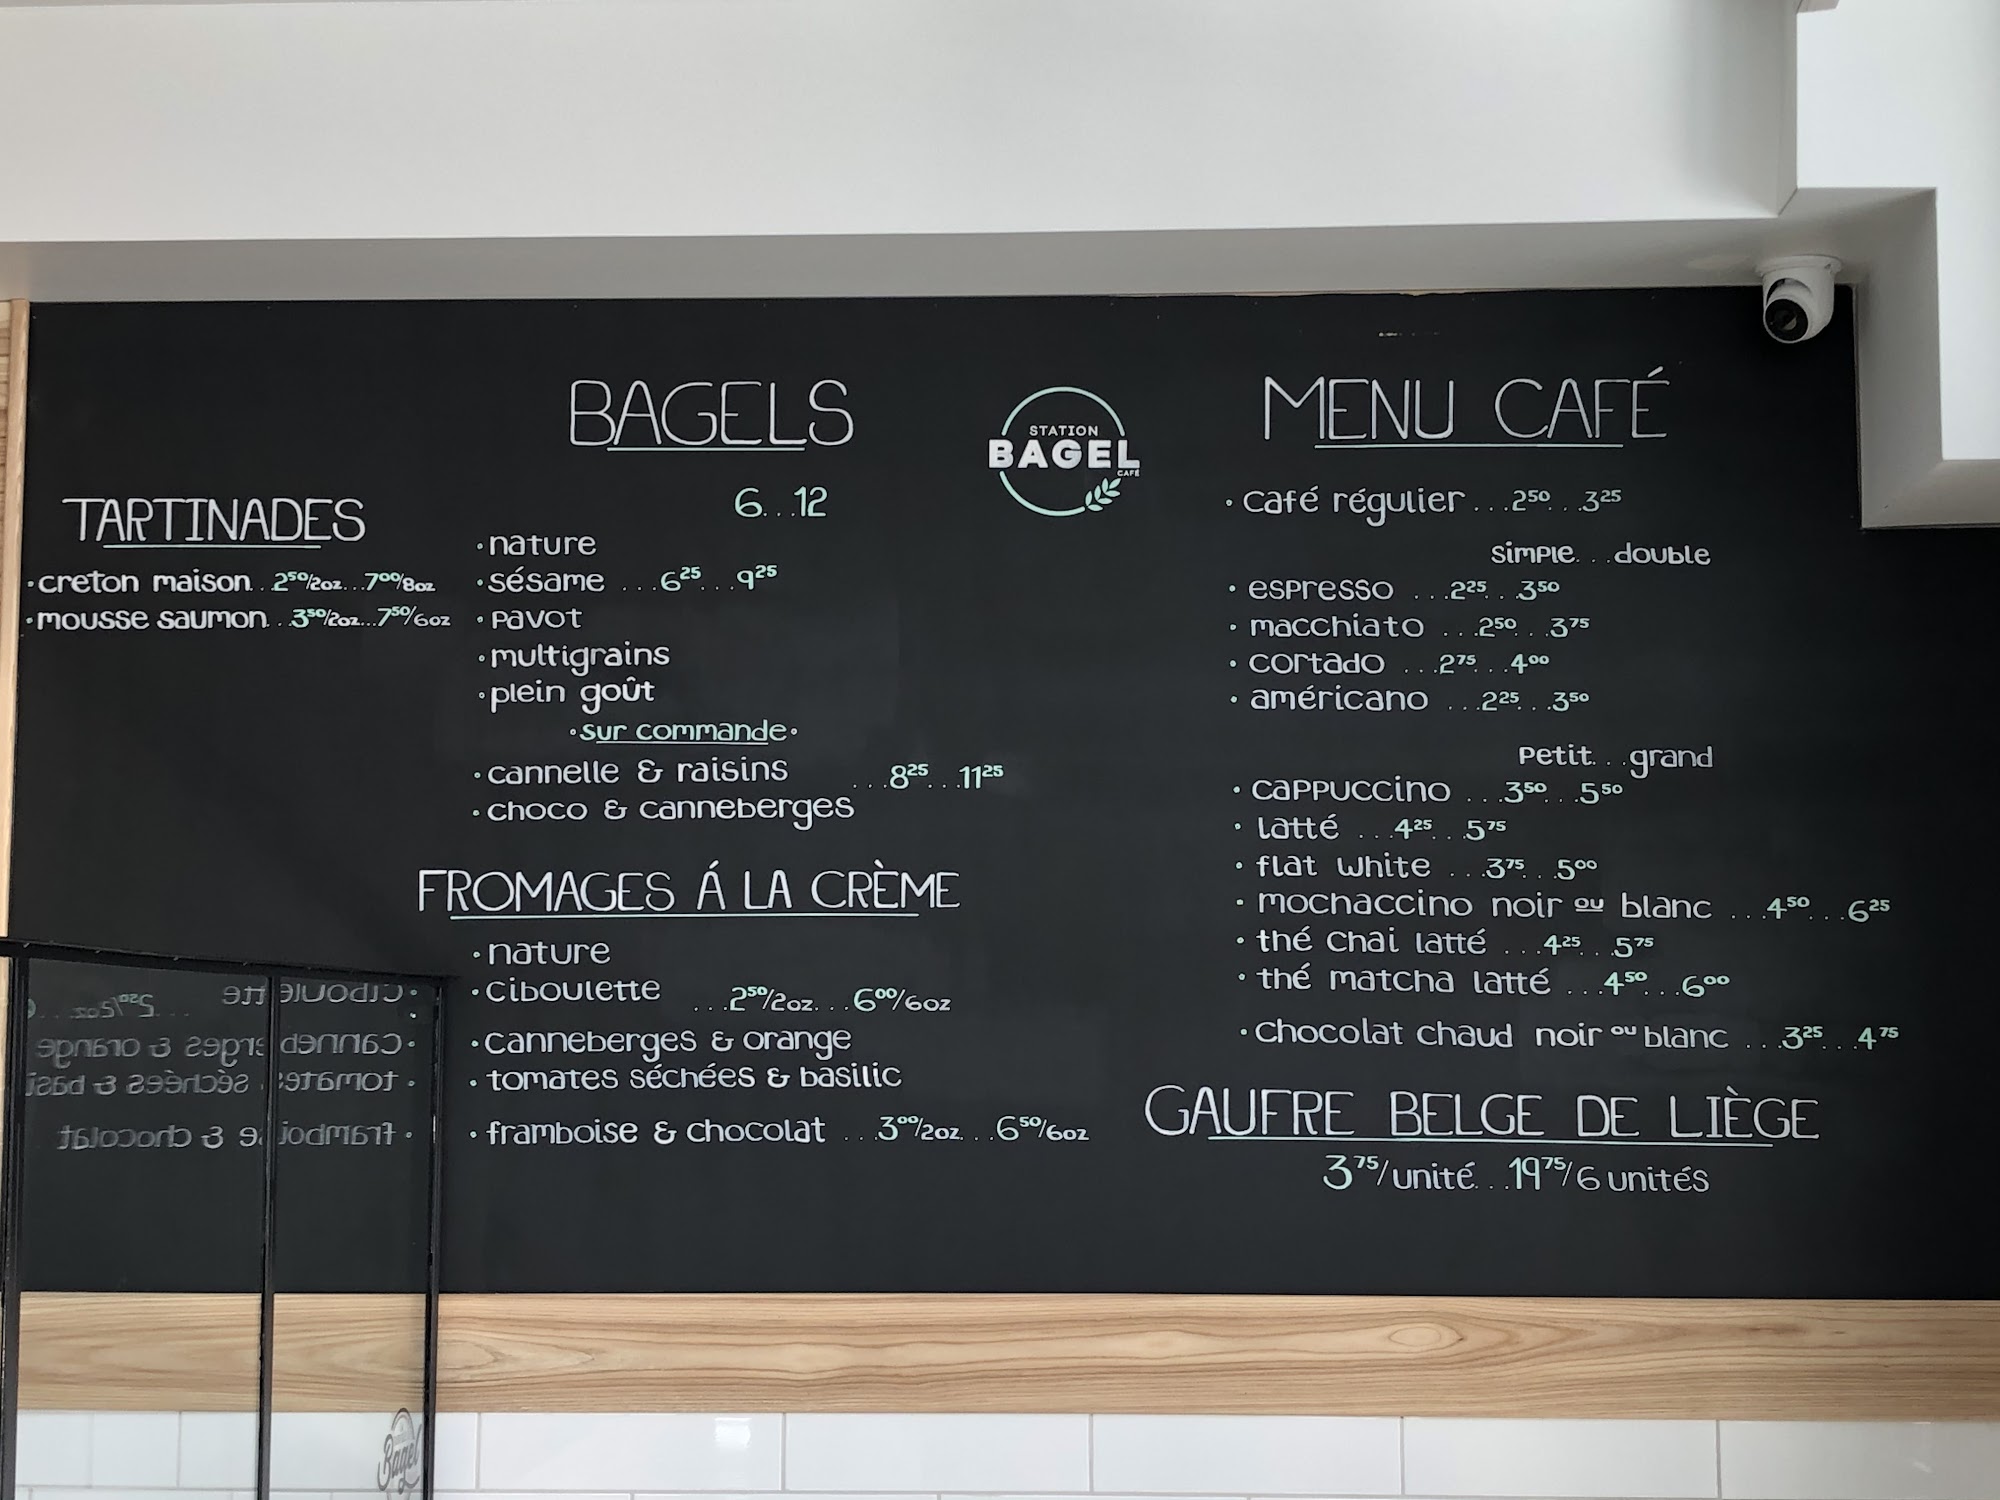 TARTINADES
·creton maison...2⁵⁰/2oz...7⁰⁰/8oz
·mousse saumon...3⁵⁰/2oz...7⁵⁰/6oz
BAGELS
6...12
·nature
·sésame ...6²⁵...9²⁵
·pavot
·multigrains
·plein goût
·sur commande·
·cannelle & raisins ...8²⁵...11²⁵
·choco & canneberges
FROMAGES Á LA CRÈME
·nature
·ciboulette ...2⁵⁰/2oz...6⁰⁰/6oz
·canneberges & orange
·tomates séchées & basilic
·framboise & chocolat ...3⁰⁰/2oz...6⁵⁰/6oz
STATION
BAGEL
CAFÉ
MENU CAFÉ
·café régulier...2⁵⁰...3²⁵
simple...double
·espresso ...2²⁵...3⁵⁰
·macchiato ...2⁵⁰...3⁷⁵
·cortado ...2⁷⁵...4⁰⁰
·américano ...2²⁵...3⁵⁰
petit...grand
·cappuccino ...3⁵⁰...5⁵⁰
·latté ...4²⁵...5⁷⁵
·flat white ...3⁷⁵...5⁰⁰
·mochaccino noir ou blanc ...4⁵⁰...6²⁵
·thé chai latté ...4²⁵...5⁷⁵
·thé matcha latté ...4⁵⁰...6⁰⁰
·chocolat chaud noir ou blanc ...3²⁵...4⁷⁵
GAUFRE BELGE DE LIÈGE
3⁷⁵/unité...19⁷⁵/6 unités
Bagel